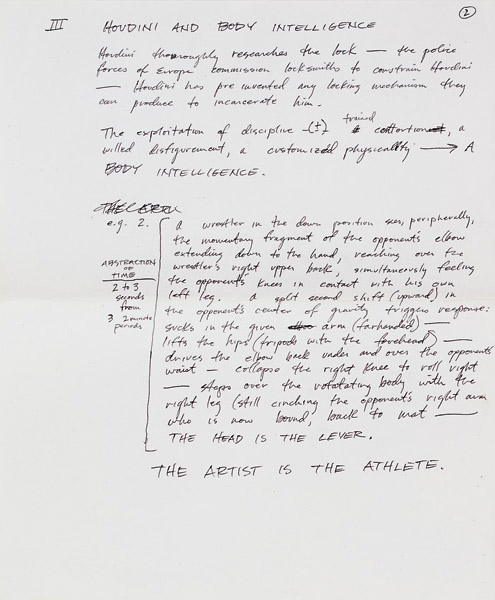 2
III HOUDINI AND BODY INTELLIGENCE
Houdini thoroughly researches the lock — the police
forces of Europe commission locksmiths to constrain Houdini
— Houdini has pre invented any locking mechanism they
can produce to incarcerate him.
The exploitation of discipline -(±) trained contortion, a
willed disfigurement, a customized physicality → A
BODY INTELLIGENCE.
e.g. 2. a wrestler in the down position sees, peripherally,
the momentary fragment of the opponent's elbow
extending down to the hand, reaching over the
wrestler's right upper back, simultaneously feeling
the opponent's knees in contact with his own
left leg. a split second shift (upward) in
the opponent's center of gravity triggers response:
sucks in the given arm (farhanded) —
lifts the hips (tripods with the forehead) —
drives the elbow back under and over the opponents
waist — collapse the right knee to roll right
— steps over the rotating body with the
right leg (still cinching the opponent's right arm
who is now bound, back to mat —
THE HEAD IS THE LEVER.
ABSTRACTION
OF
TIME
2 to 3
seconds
from
3 2 minute
periods
THE ARTIST IS THE ATHLETE.